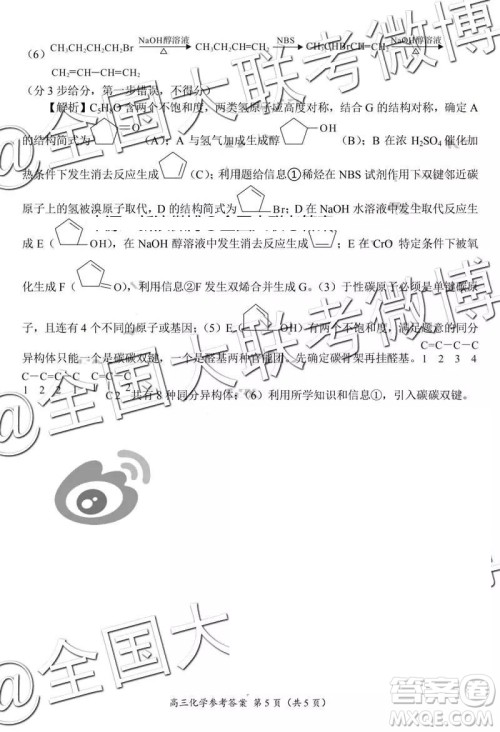 (6) CH₃CH₂CH₂CH₂Br NaOH醇溶液 △ CH₃CH₂CH=CH₂ NBS CH₃CHBrCH=CH₂ NaOH醇溶液 △
CH₂=CH—CH=CH₂
(分 3 步给分，第一步错误，不得分)
【解析】C₅H₈O 含两个不饱和度，两类氢原子应高度对称，结合 G 的结构对称，确定 A
的结构简式为 O (A)；A 与氢气加成生成醇 OH (B)；B 在浓 H₂SO₄ 催化加
热条件下发生消去反应生成 (C)；利用题给信息①稀烃在 NBS 试剂作用下双键邻近碳
原子上的氢被溴原子取代，D 的结构简式为 Br；D 在 NaOH 水溶液中发生取代反应生
成 E( OH)，在 NaOH 醇溶液中发生消去反应生成 ；E 在 CrO 特定条件下被氧
化生成 F( O)，利用信息②F 发生双烯合并生成 G。(3) 手性碳原子必须是单键碳原
子，且连有 4 个不同的原子或基团；(5) E( OH)有两个不饱和度，满足题意的同分
异构体只能一个是碳碳双键，一个是醛基两种官能团。先确定碳骨架再挂醛基。 C—C—C—C
1 2 3 4
C—C—C—C C=C—C
1 2 2 1 1 2
C 2 共有 8 种同分异构体；(6) 利用所学知识和信息①，引入碳碳双键。
@全国大联考微博
@全国大联考微博
@全国大
高三化学参考答案 第 5 页（共 5 页）
www.daanquan.com